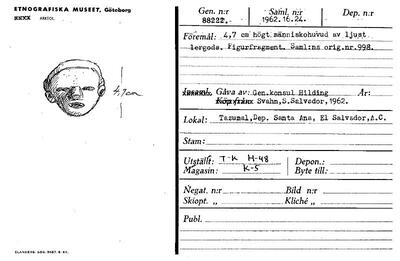 ETNOGRAFISKA MUSEET, Göteborg
4,7cm
Gen. n:r
88222.
Saml. n:r
1962.16.24.
Dep. n:r
Föremål: 4,7 cm högt människohuvud av ljust
lergods. Figurfragment. Saml:ns orig.nr.998.
Gåva av: Gen.konsul Hilding År:
Köp från: Svahn, S.Salvador, 1962.
Lokal: Tazumal, Dep. Santa Ana, El Salvador, A.C.
Stam:
Utställt: T-K H-48 Depon.:
Magasin: K-5 Byte till:
Negat. n:r Bild n:r
Skiopt. „ Kliché „
Publ.